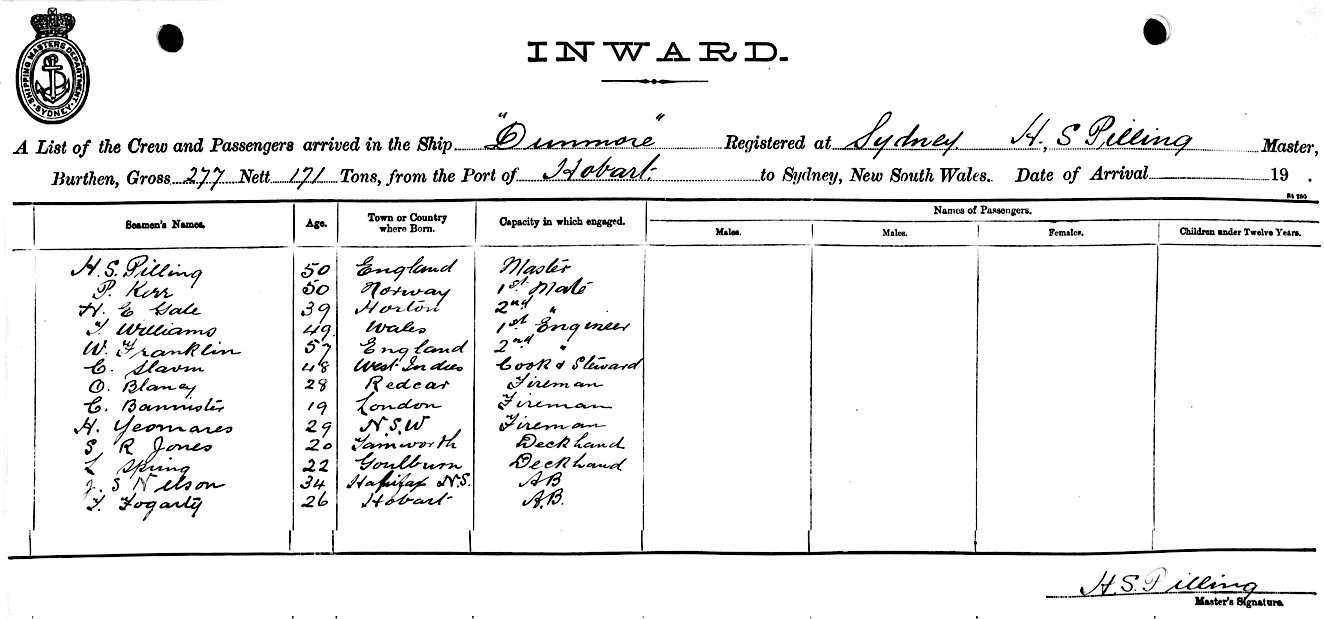 SHIPPING MASTERS DEPARTMENT
SYDNEY
INWARD.
A List of the Crew and Passengers arrived in the Ship "Dunmore" Registered at Sydney H. S Pilling Master,
Burthen, Gross 277 Nett 171 Tons, from the Port of Hobart to Sydney, New South Wales. Date of Arrival 19 .
Seamen's Names. Age. Town or Country where Born. Capacity in which engaged. Names of Passengers.
Males. Males. Females. Children under Twelve Years.
H. S. Pilling 50 England Master
P. Kerr 50 Norway 1st Mate
H. E Gale 39 Horton 2nd "
T. Williams 49 Wales 1st Engineer
W. Franklin 57 England 2nd "
C. Slavin 48 West Indies Cook & Steward
O. Blaney 28 Redcar Fireman
C. Bannister 19 London Fireman
H. Yeomares 29 N.S.W Fireman
S. R Jones 20 Tamworth Deckhand
L Spring 22 Goulburn Deckhand
J. S Nelson 34 Halifax N.S. AB
T. Fogarty 26 Hobart A.B.
H. S. Pilling
Master's Signature.